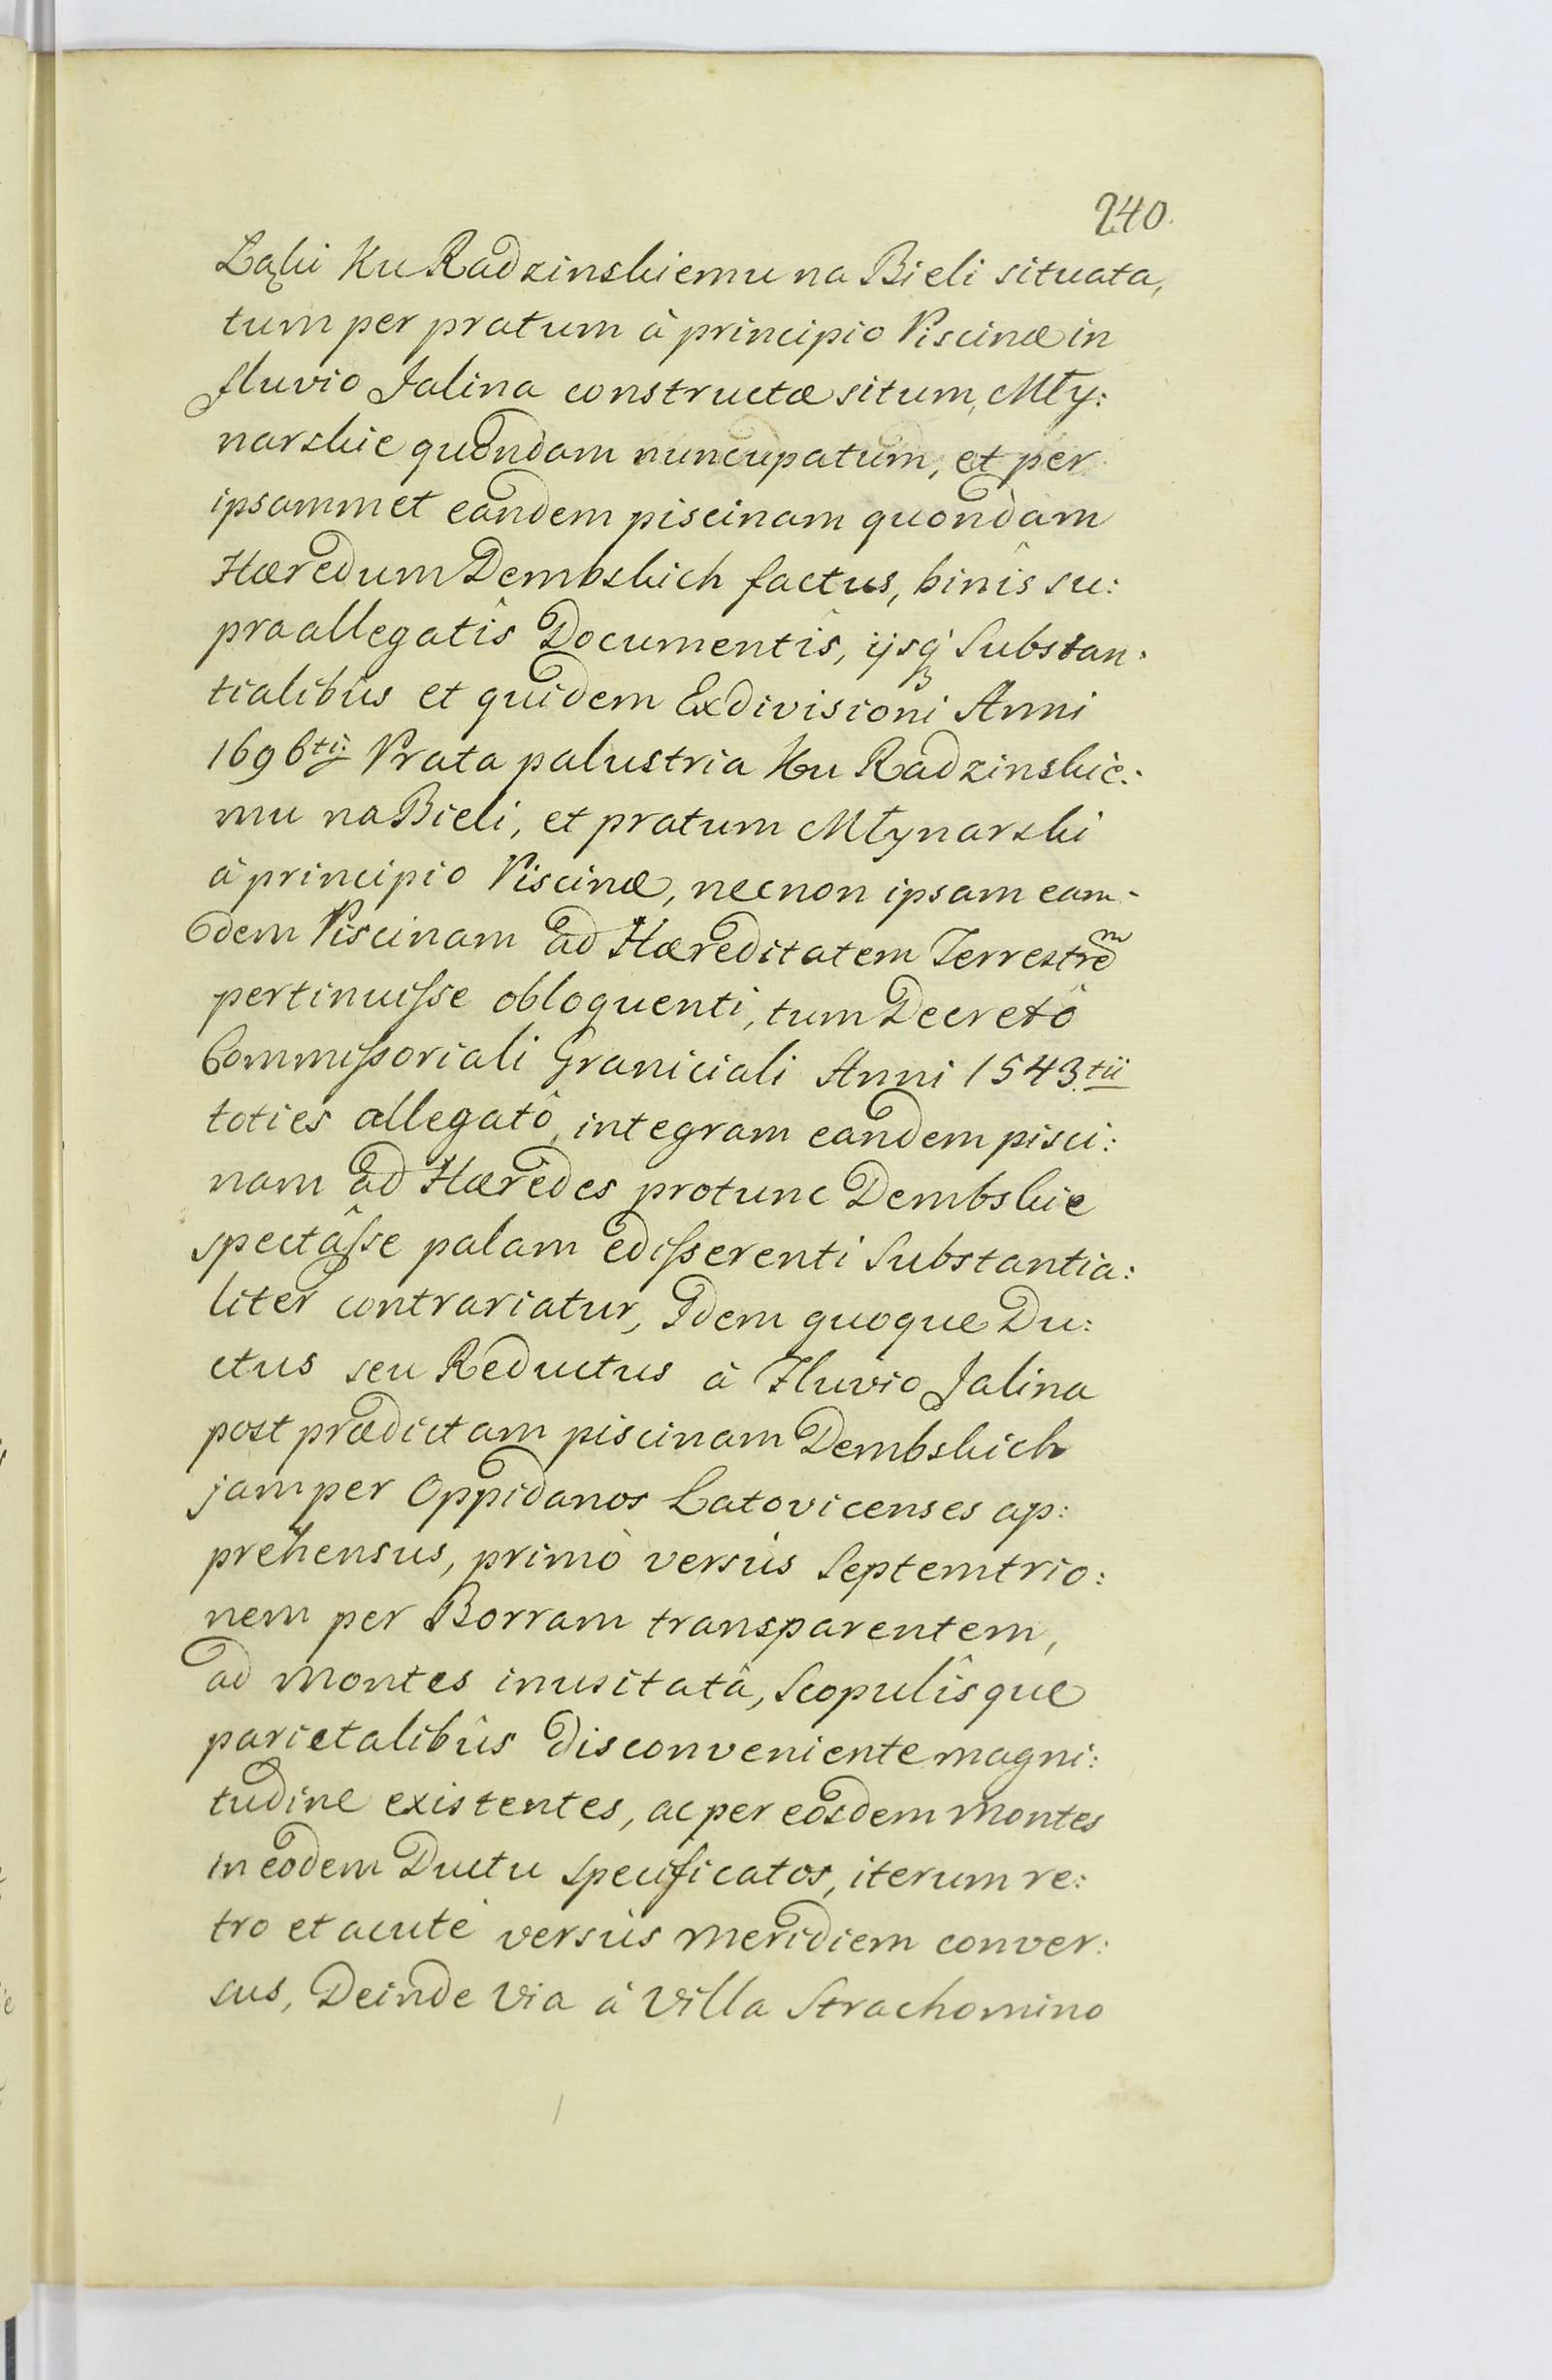 240.
Łąki Ku Radzinskiemu na Bieli situata,
tum per pratum à principio Piscinæ in
fluvio Jalina constructæ situm, Mły:
narskie quondam nuncupatum, et per
ipsammet eandem piscinam quondam
Hæredum Dembskich factus, binîs su:
praallegatîs Documentîs, ijsq́ Substan:
tialibûs et quidem Exdivisioni Anni
1696ti: Prata palustria Ku Radzinskie:
mu na Bieli, et pratum Młynarski
à principio Piscinæ, necnon ipsam eam-
dem Piscinam ad Hæreditatem Terrestrem
pertinuiſse obloquenti, tum Decretô
Commiſsoriali Graniciali Anni 1543.tii
toties allegatô, integram eandem pisci:
nam ad Hæredes protunc Dembskie
spectâſse palam ediſserenti Substantia:
liter contrariatur, Idem quoque Du:
ctus seu Reductus à Fluvio Jalina
post prædictam piscinam Dembskich
jam per Oppidanos Latovicenses ap:
prehensus, primò versùs Septemtrio:
nem per Borram transparentem,
ad Montes inusitatâ, Scopulîsque
parietalibûs disconveniente magni:
tudine existentes, ac per eosdem Montes
in eodem Ductu specificatos, iterum re:
tro et acutè versùs Meridiem conver:
sus, Deinde Via à Villa Strachomino